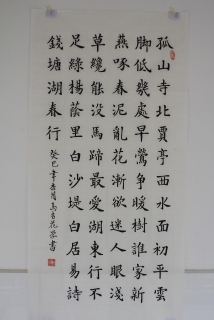 孤山寺北賈亭西水面初平雲
脚低幾處早鶯爭暖樹誰家新
燕啄春泥亂花漸欲迷人眼淺
草纔能没馬蹄最愛湖東行不
足綠楊蔭里白沙堤白居易詩
錢塘湖春行
癸巳年 月 書